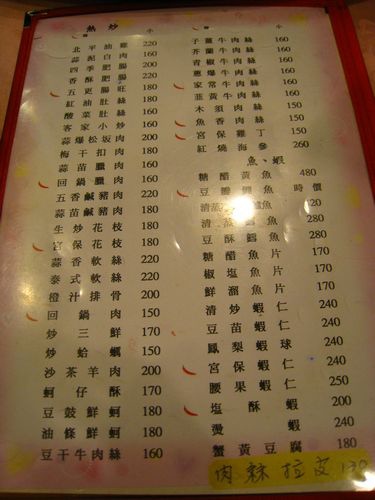 熱炒 小
北平油雞 220
蒜泥白肉 160
四季肥腸 200
香酥肥腸 220
五更腸旺 180
紅油肚絲 160
酸菜肚絲 160
客家小炒 160
蒜爆松坂肉 200
梅干扣肉 180
蒜苗臘肉 160
回鍋臘肉 160
五香鹹豬肉 220
蒜苗鹹豬肉 180
生炒花枝 180
宮保花枝 180
蒜香軟絲 220
泰式軟絲 220
橙汁排骨 200
回鍋肉 150
炒三鮮 170
炒蛤蠣 150
沙茶羊肉 200
蚵仔酥 170
豆鼓鮮蚵 180
油條鮮蚵 180
豆干牛肉絲 160
小
子薑牛肉絲 160
芥蘭牛肉絲 160
青椒牛肉絲 160
蔥爆牛肉絲 160
家常牛肉絲 160
韮黃牛肉絲 160
木須肉絲 150
魚香肉絲 150
宮保雞丁 150
紅燒海參 260
魚、蝦
糖醋黃魚 480
豆瓣鯉魚 時價
清蒸 魚 20
清蒸 魚 280
豆酥鱈魚 280
糖醋魚片 170
椒塩魚片 170
鮮溜魚片 170
清炒蝦仁 240
豆苗蝦仁 240
鳳梨蝦球 240
宮保蝦仁 240
腰果蝦仁 250
塩酥蝦 200
燙蝦 240
蟹黃豆腐 180
肉絲拉皮 130